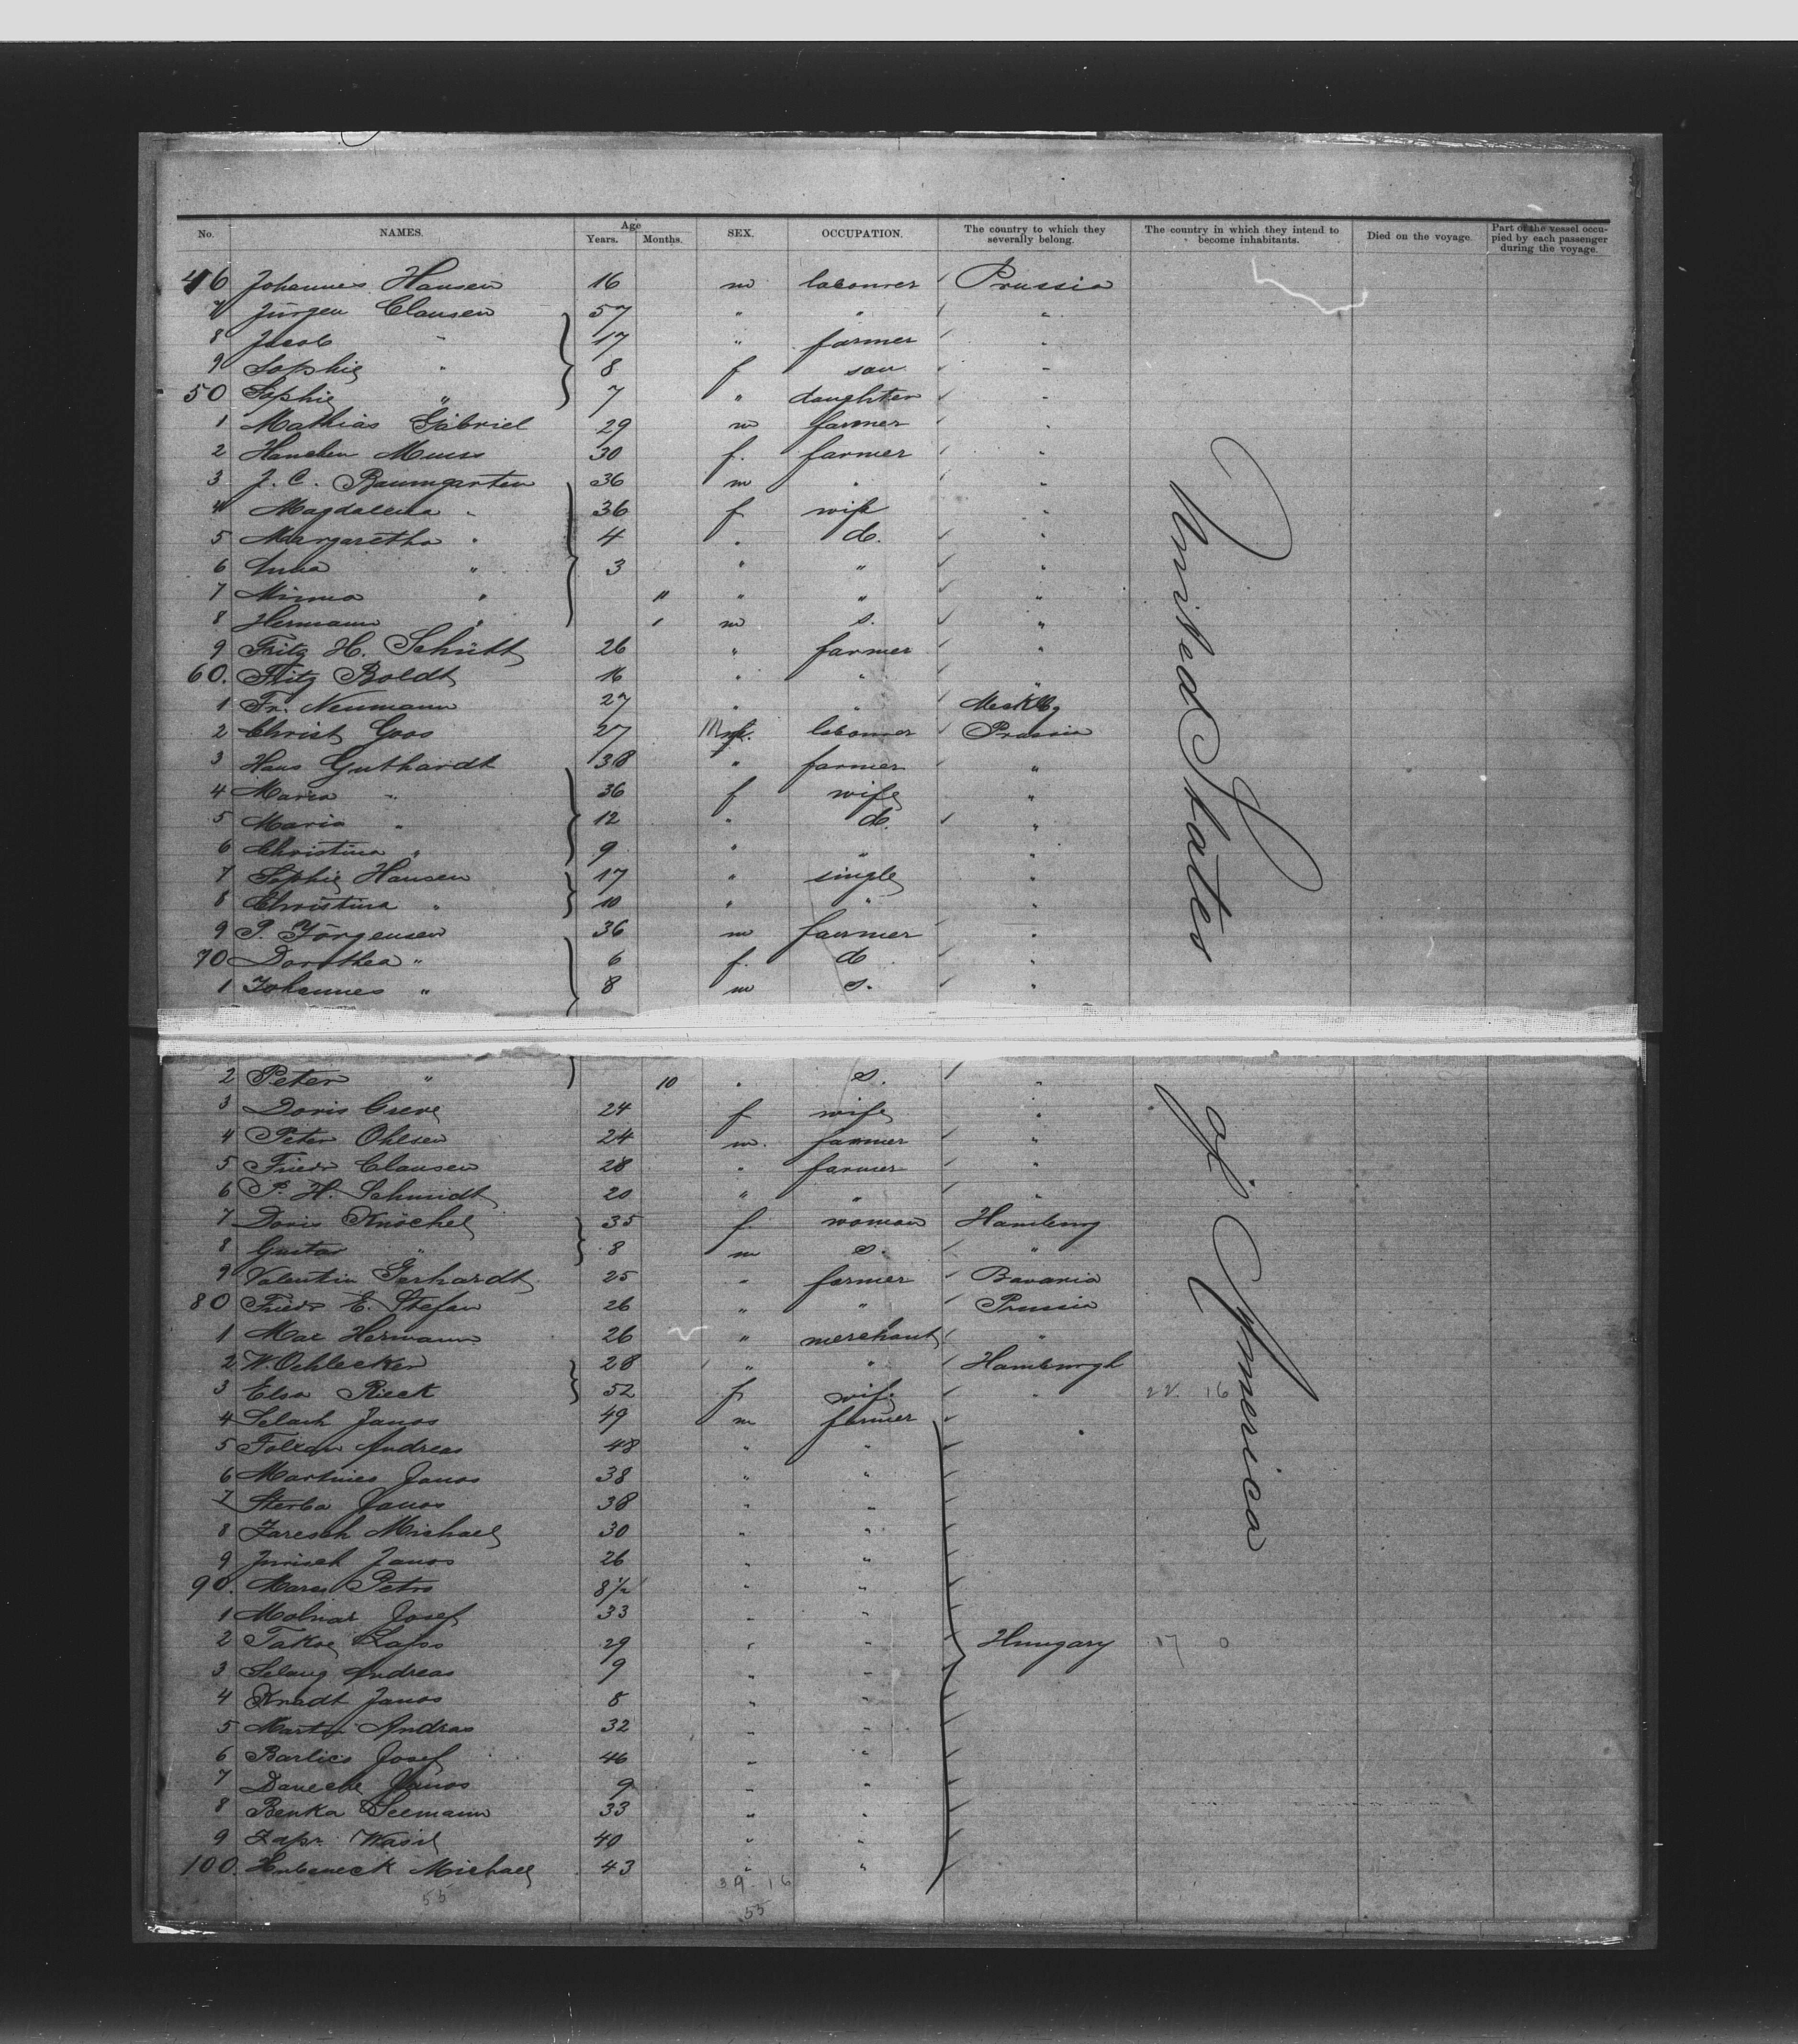 No. NAMES. Age Years. Months. SEX. OCCUPATION. The country to which they severally belong. The country in which they intend to become inhabitants. Died on the voyage. Part of the vessel occupied by each passenger during the voyage.
46 Johannes Hansen 16 m labourer Prussia
7 Jürgen Clausen 57 " " "
8 Jacob " 17 " farmer "
9 Sophie " 8 f son "
50 Sophie " 7 " daughter "
1 Mathias Gabriel 29 m farmer "
2 Hanchen Muss 30 f. farmer "
3 J. C. Baumgarten 36 m " "
4 Magdalena " 36 f wife "
5 Margaretha " 4 " d. "
6 Anna " 3 " " "
7 Minna " 11 " " "
8 Hermann " 1 m s. "
9 Fritz H. Schütt 26 " farmer "
60. Fritz Boldt 16 " " "
1 Fr. Neumann 27 " " Mecklbg
2 Christ Goos 27 M labourer Prussia
3 Hans Guthardt 38 " farmer "
4 Maria " 36 f wife "
5 Maria " 12 " d. "
6 Christina " 9 " " "
7 Sophie Hansen 17 " single "
8 Christina " 10 " " "
9 P. Jörgensen 36 m farmer "
70 Dorothea " 6 f. d "
1 Johannes " 8 m s. "
2 Peter " 10 " s. "
3 Doris Greve 24 f wife "
4 Peter Ohlsen 24 m. farmer "
5 Friedr Clausen 28 " farmer "
6 P. H. Schmidt 20 " " "
7 Doris Knöchel 35 f. woman Hamburg
8 Gustav " 8 m s. "
9 Valentin Gerhardt 25 " farmer Bavaria
80 Friedr E. Stefan 26 " " Prussia
1 Max Hermann 26 " merchant "
2 W. Oehlecker 28 " " Hamburgh
3 Elsa Rieck 52 f wife " 22 16
4 Selach Janos 49 m farmer
5 Andreas 48 " "
6 Martinics Janos 38 " "
7 Sterba Janos 38 " "
8 Zaresch Michael 30 " "
9 Janos 26 " "
90. Petro 8 1/2 " "
1 Molnar Josef 33 " "
2 Takoc Lajos 29 " " Hungary 17 0
3 Selang Andreas 9 " "
4 Knadt Janos 8 " "
5 Andras 32 " "
6 Barlics Josef 46 " "
7 Janos 9 " "
8 Benka Seemann 33 " "
9 Zapr Wasil 40 " "
100. Michael 43 " "
39 16
55 55
United States of America